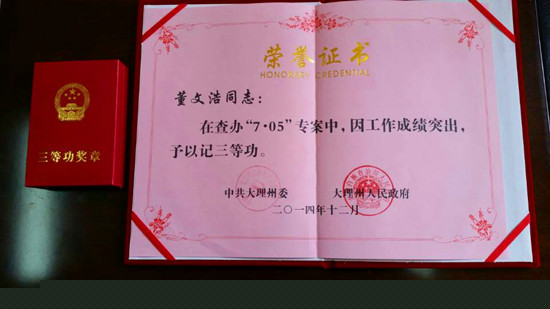 三等功奖章
荣誉证书
HONORARY CREDENTIAL
董文浩同志：
在查办“7·05”专案中，因工作成绩突出，
予以记三等功。
中共大理州委 大理州人民政府
二〇一四年十二月